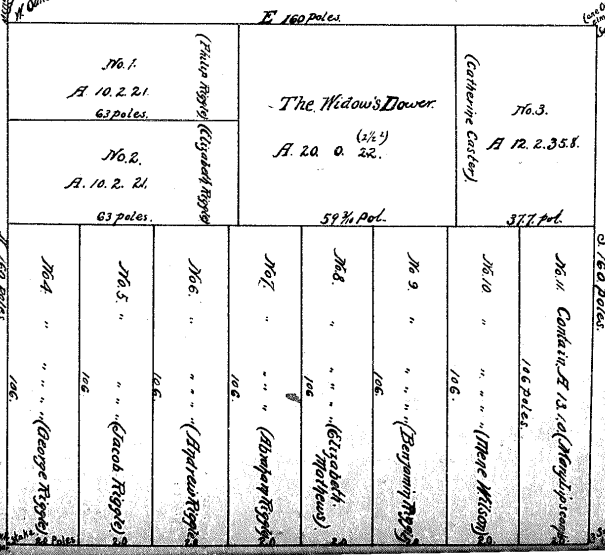 E 160 poles.
No. 1.
A 10. 2. 21.
63 poles.
(Philip Riggle)
No. 2.
A. 10. 2. 21.
63 poles.
(Elizabeth Riggle)
The Widow's Dower.
A. 20. 0. 22.
59 3/10 Pol.
(Catherine Caster).
No. 3.
A 12. 2. 35.8.
37.7. pol.
160 poles
S. 160 poles.
No 4. " " " " (George Riggle)
106.
Poles
No. 5. " " " " (Jacob Riggle)
106
20
No 6. " " " " (Andrew Riggle)
106
20
No 7. " " " " (Abraham Riggle)
106.
20
No 8. " " " " (Elizabeth Mathews)
106
20
No 9. " " " " (Benjamin Riggle)
106
20
No. 10 " " " " (Mene Wilson)
106.
20
No. 11. Contain. A 13. 1. 0.
106 poles.
20